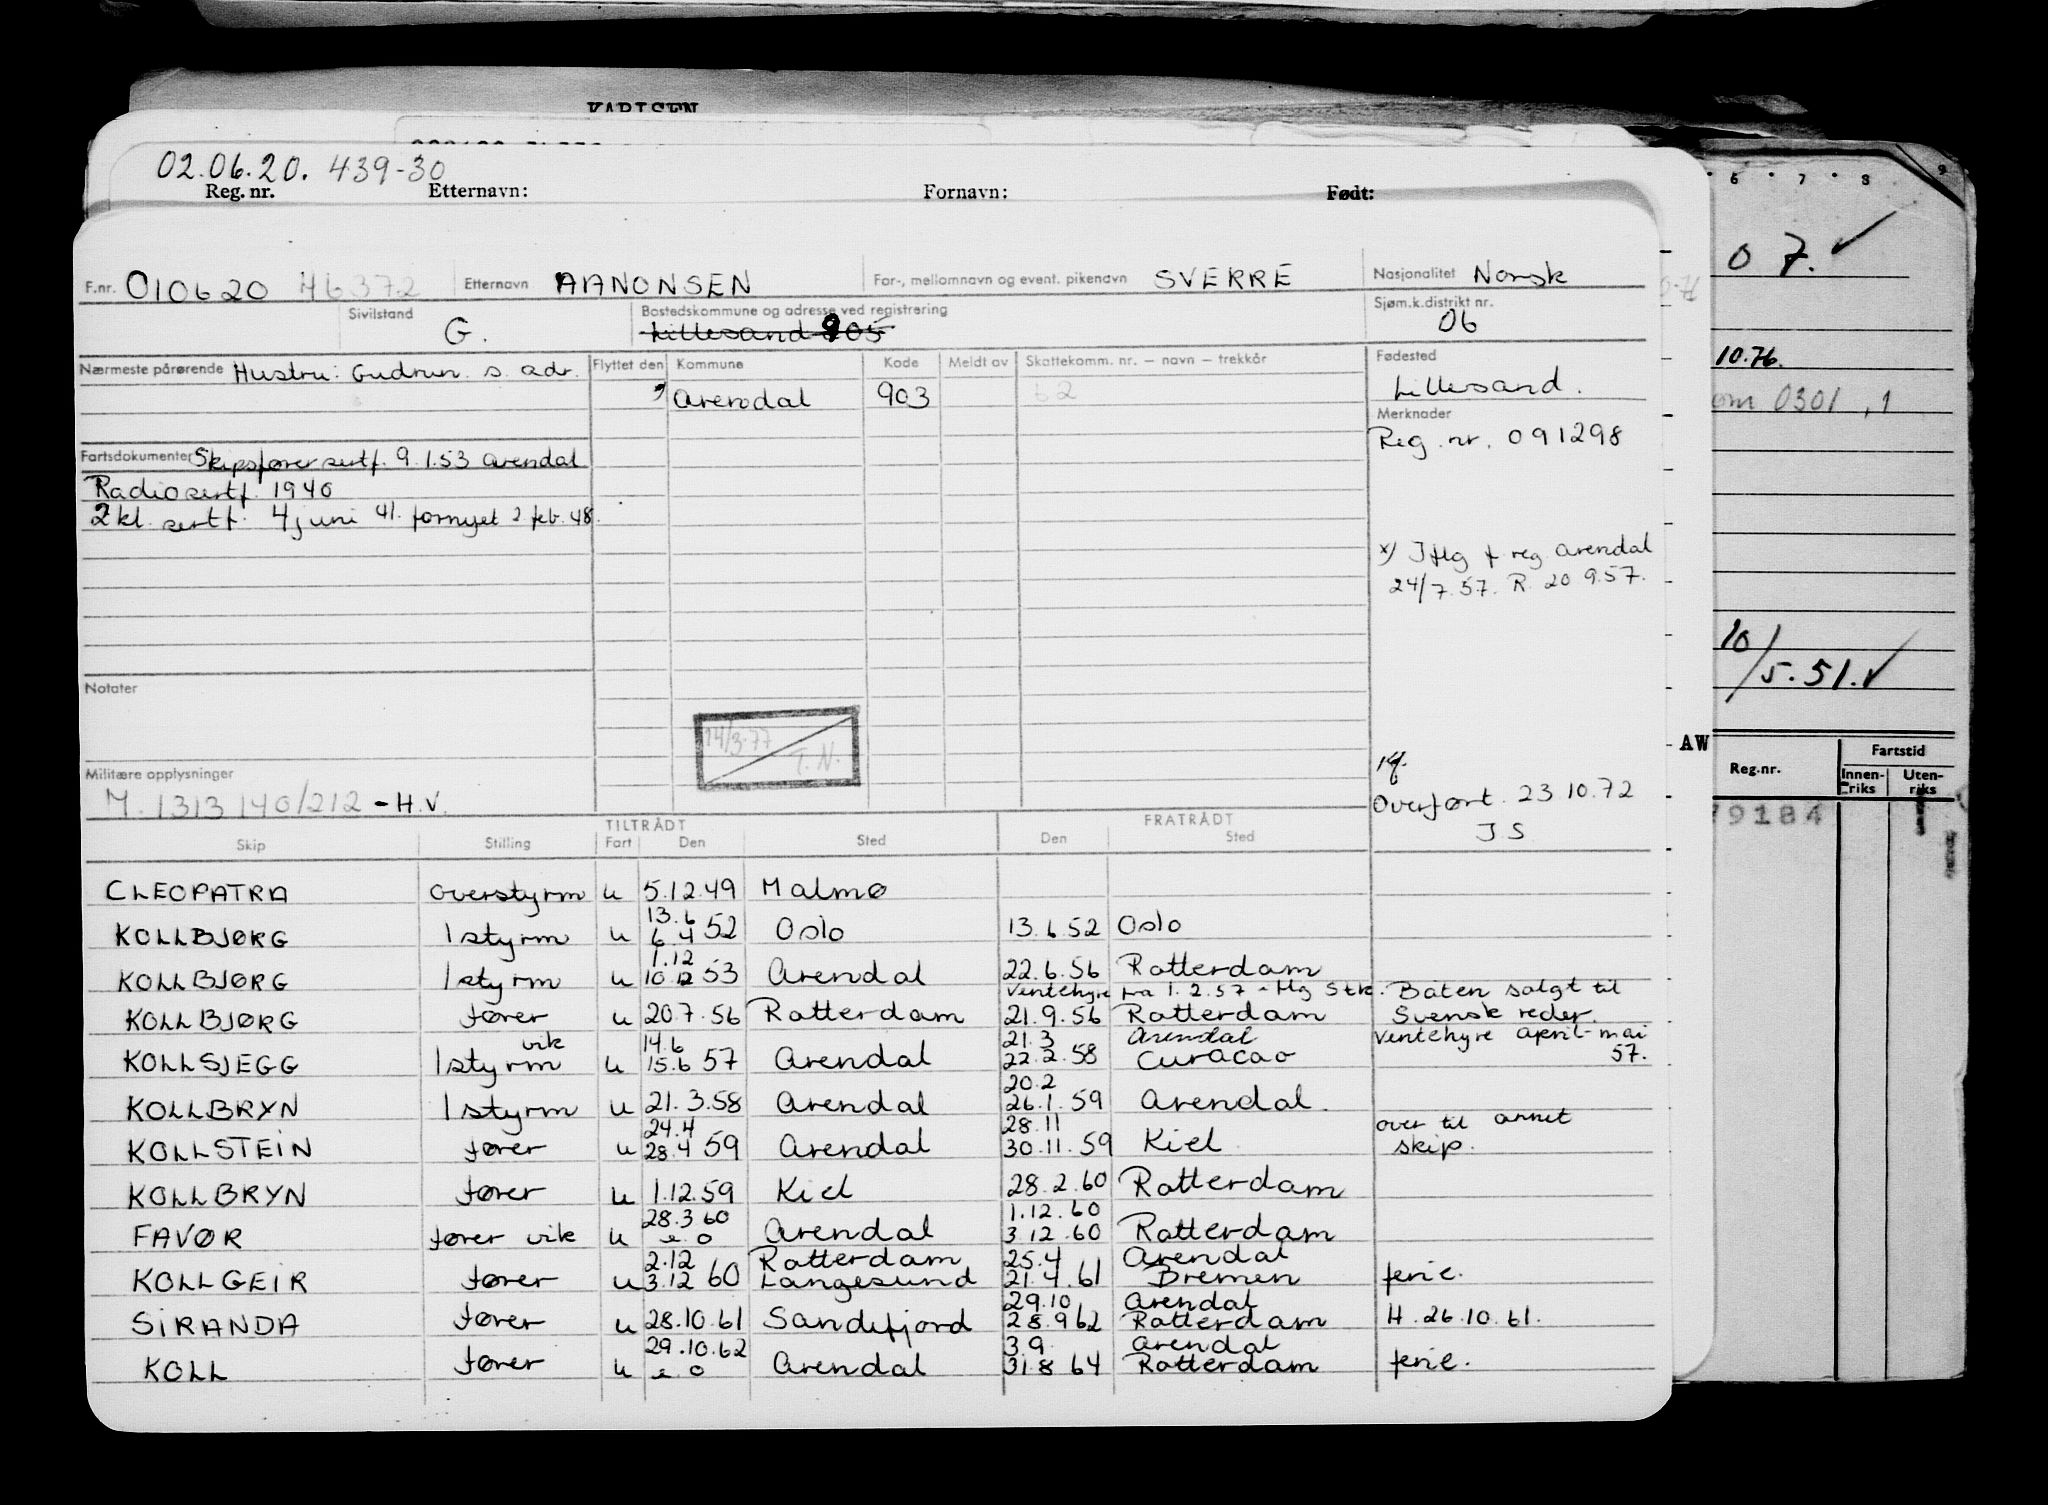 KARLSEN
02.06.20. 439-30
Reg. nr. Etternavn: Fornavn: Født:
F.nr. 010620 46372 Etternavn AANONSEN For-, mellomnavn og event. pikenavn SVERRE Nasjonalitet Norsk
Sivilstand G. Bostedskommune og adresse ved registrering Lillesand 905 Sjøm.k.distrikt nr. 06
Nærmeste pårørende Hustru: Gudrun s. adr. Flyttet den Kommune Kode Meldt av Skattekomm. nr. — navn — trekkår Fødested
Arendal 903 62 Lillesand.
Merknader
Reg. nr. 091298
Fartsdokumenter Skipsfører sertf. 9.1.53 Arendal
Radiosertf. 1940
2 kl. sertf. 4 juni 41. fornyet 2 feb. 48.
x) Iflg f reg Arendal
24/7.57. R. 20 9.57.
Notater
14/3-77
T.N.
Militære opplysninger
M. 1313 140/212 - H.V.
Overført. 23.10.72
J S
TILTRÅDT FRATRÅDT
Skip Stilling Fart Den Sted Den Sted
CLEOPATRA overstyrm u 5.12.49 Malmø
13.6
KOLLBJØRG 1 styrm u 6.4 52 Oslo 13.6.52 Oslo
1.12
KOLLBJØRG 1 styrm u 10.12 53 Arendal 22.6.56 Rotterdam
Ventehyre fra 1.2.57 - Hg Stk. Båten solgt til
KOLLBJØRG fører u 20.7.56 Rotterdam 21.9.56 Rotterdam Svensk reder.
vik 14.6 21.3 Arendal Ventehyre april-mai
KOLLSJEGG 1 styrm u 15.6 57 Arendal 22.2.58 Curacao 57.
20.2
KOLLBRYN 1 styrm u 21.3.58 Arendal 26.1.59 Arendal.
24.4 28.11 over til annet
KOLLSTEIN fører u 28.4 59 Arendal 30.11.59 Kiel skip.
KOLLBRYN fører u 1.12.59 Kiel 28.2.60 Rotterdam
28.3 60 1.12.60
FAVØR fører vik u e. o Arendal 3 12.60 Rotterdam
2.12 Rotterdam 25.4 Arendal
KOLLGEIR fører u 3.12 60 Langesund 21.4.61 Bremen ferie.
29.10 Arendal
SIRANDA fører u 28.10.61 Sandefjord 28.9 62 Rotterdam H. 26.10.61.
29.10.62 3 9. Arendal
KOLL fører u e. o Arendal 31.8 64 Rotterdam ferie.
6 7 8 9
0 7.
10.76.
0301 , 1
10/5.51.
AW
Reg.nr. Fartstid
Innenriks Utenriks
79184